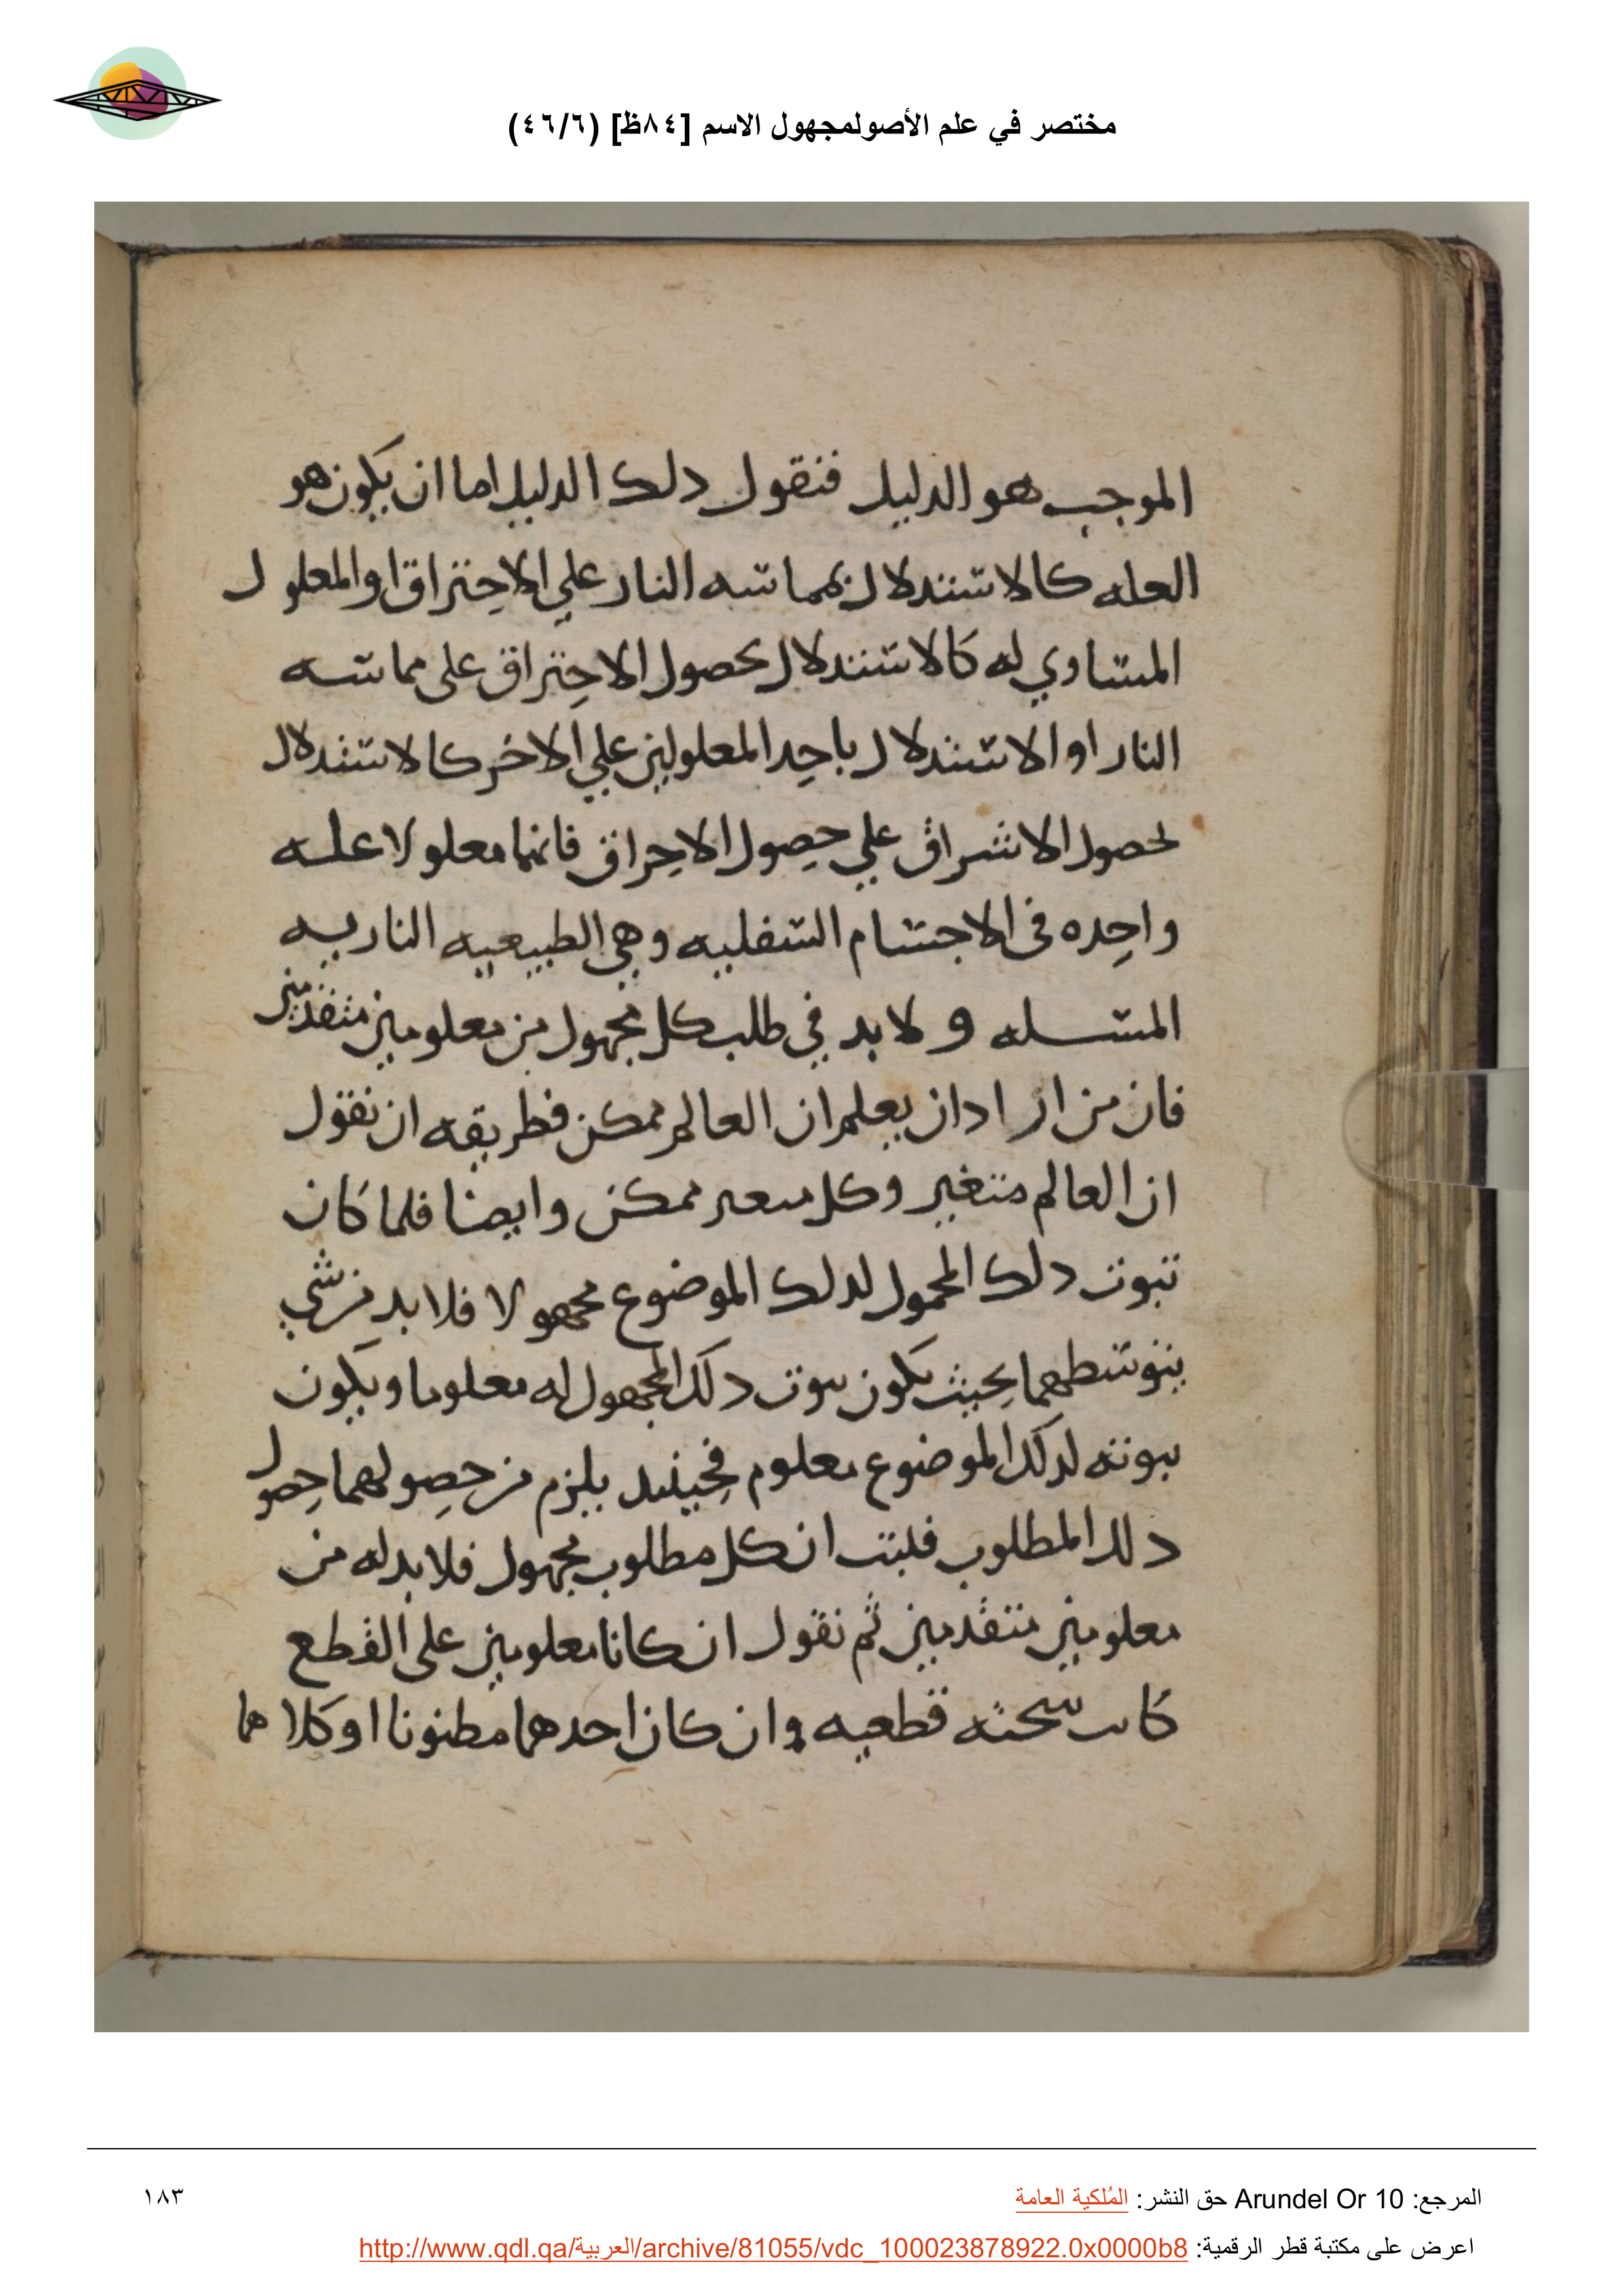 مختصر في علم الأصولمجهول الاسم [٨٤ظ] (٤٦/٦)
الموجب هو الدليل فنقول دلك الدليل اما ان يكون هو
العله كالاستدلال بمماسه النار علي الاحتراق او المعلول
المساوي له كالاستدلال بحصول الاحتراق على مماسه
النار او الاستدلال باحد المعلولين علي الاخر كالاستدلال
بحصول الاشراق علي حصول الاحراق فانهما معلولا علـه
واحده فى الاجسام السفليه وهي الطبيعيه الناريه
المسـله ولا بد في طلب كل مجهول من معلومين متقدمين
فان من اراد ان يعلم ان العالم ممكن فطريقه ان نقول
ان العالم متغير وكل متعير ممكن وايضا فلما كان
تبوت دلك المحمول لدلك الموضوع مجهولا فلا بد من شي
يتوسطهما بحيث يكون تبوت دلك المجهول له معلوما ويكون
تبوته لدلك الموضوع معلوم فحينيد يلزم من حصولهما حصول
دلك المطلوب فلبتت ان كل مطلوب مجهول فلا بد له من
معلومين متقدمين ثم نقول ان كانا معلومين على القطع
كانت قطعيه وان كان احدهما مطنونا او كلاهما
المرجع: Arundel Or 10 حق النشر: المُلكية العامة
١٨٣
اعرض على مكتبة قطر الرقمية: http://www.qdl.qa/العربية/archive/81055/vdc_100023878922.0x0000b8